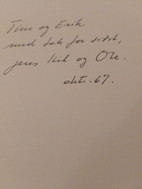 Tine og Erik
med tak for sidst,
jeres Kit og Ole.
okt. 67.